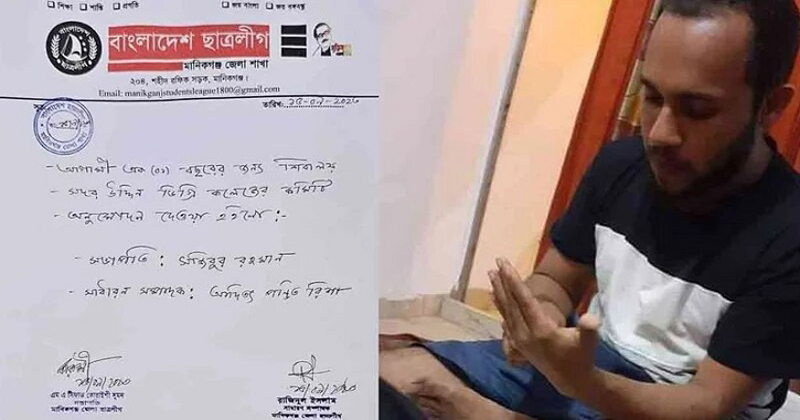 শিক্ষা শান্তি প্রগতি জয় বাংলা জয় বঙ্গবন্ধু
বাংলাদেশ ছাত্রলীগ
বাংলাদেশ
ছাত্রলীগ
মানিকগঞ্জ জেলা শাখা
২০৪, শহীদ রফিক সড়ক, মানিকগঞ্জ।
Email: manikganjstudentsleague1800@gmail.com
তারিখ:
- আগামী এক (০১) বছরের জন্য শিবালয়
- সদর উদ্দিন ডিগ্রি কলেজের কমিটি
- অনুমোদন দেওয়া হইলো:-
- সভাপতি : মজিবুর রহমান
- সাধারন সম্পাদক: আদিত্য পন্ডিত রিশা
এম এ সিফাত কোরাইশী সুমন
সভাপতি
মানিকগঞ্জ জেলা ছাত্রলীগ
রাজিদুল ইসলাম
সাধারণ সম্পাদক
মানিকগঞ্জ জেলা ছাত্রলীগ